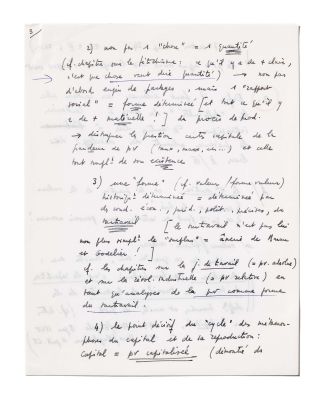 3
2) non pas 1 "chose" = 1 quantité
(cf. chapitre sur le fétichisme : ce qu'il y a de + clair,
c'est que chose veut dire quantité) → non pas
d'abord enjeu de partages, mais 1 "rapport
social" = forme déterminée [et tout ce qu'il y
a de + matérielle !] du procès de prod.
→ distinguer la question certes capitale de la
grandeur de pv (taux, masse, ...) et celle
tout simplt de son existence
3) une "forme" (cf. valeur / forme valeur)
historiqt déterminée = déterminée par
ds cond. écon., jurid., polit., précises, du
surtravail [le surtravail n'est pas lui
non plus simplt le "surplus" = ânerie de
et Godelier ! ]
cf. les chapitres sur la j. de travail (= pv. absolue)
et sur la révol. industrielle (= pv relative) en
tant qu'analyses de la pv comme forme
du surtravail.
4) le point décisif du "cycle" des métamor-
phoses du capital et de sa reproduction :
capital = pv capitalisée (démontré ds